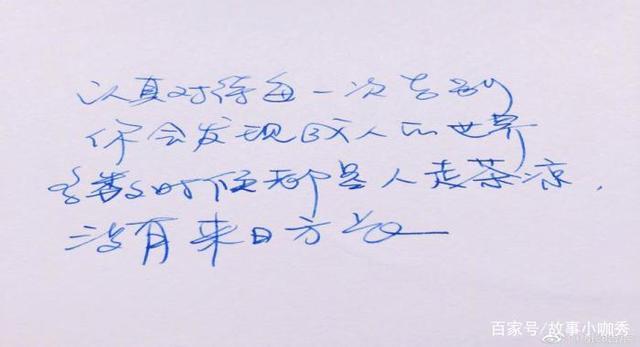 认真对待每一次告别
你会发现成人的世界
多数时候都是人走茶凉，
没有来日方长
百家号/故事小咖秀